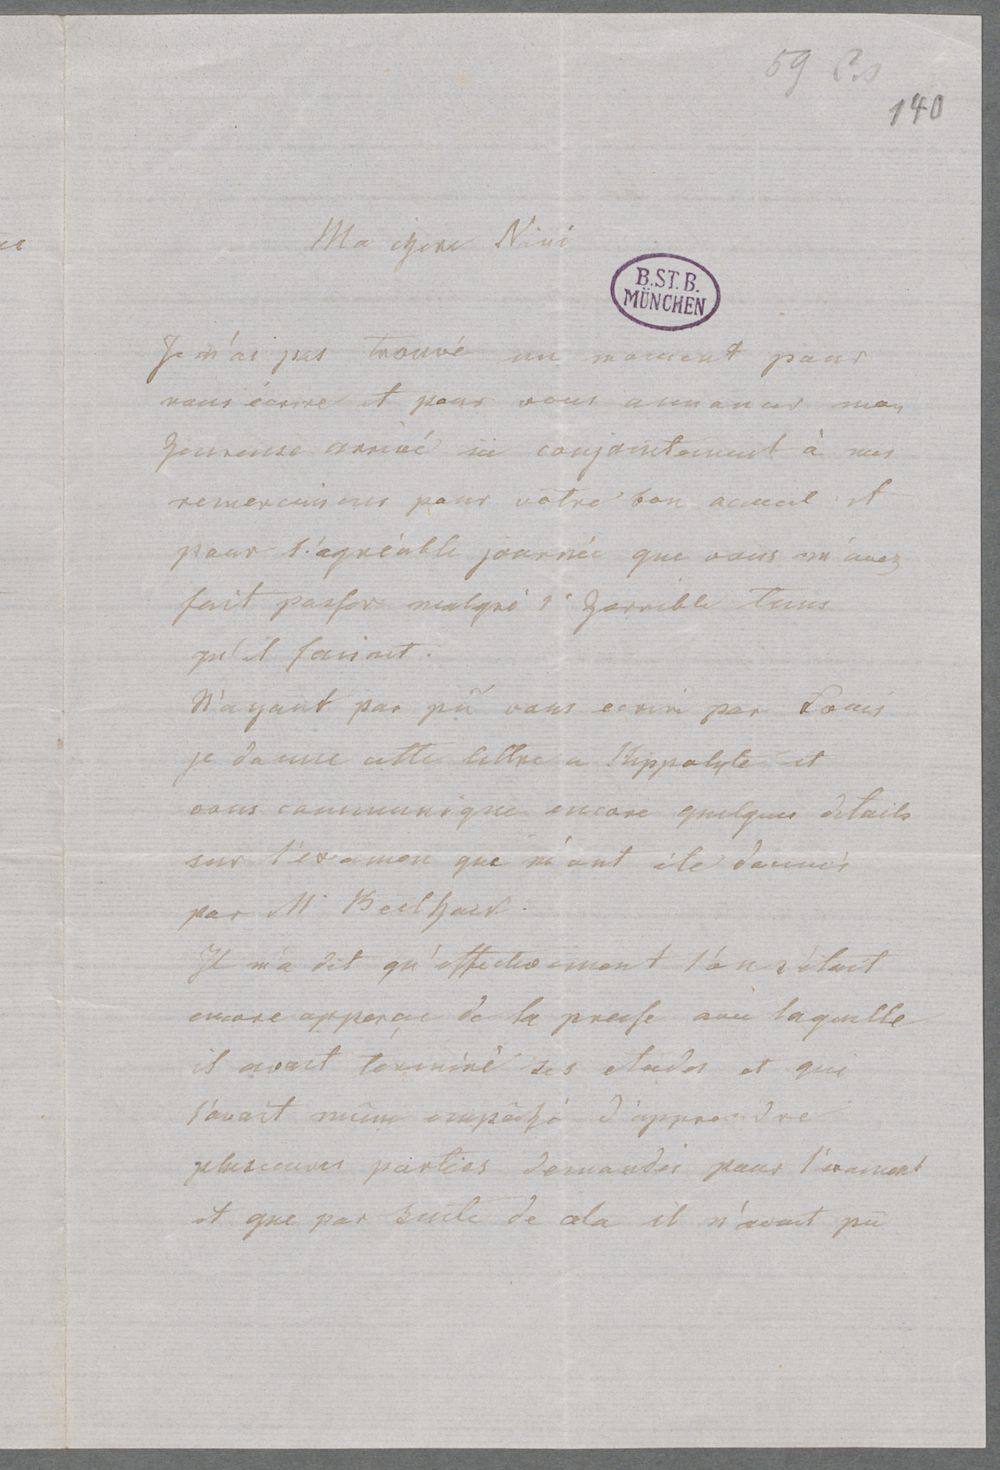 59 
140
Ma chere Nini
B.ST.B.
MÜNCHEN
Je n'ai pas trouvé un moment pour
vous écrire et pour vous annoncer mon
heureuse arrivé ici conjointement à mes
remerciments pour votre bon acceuil et
pour l'agréable journée que vous m'avez
fait passer malgré l'horrible tems
qu'il faisait.
N'ayant pas pû vous ecrire par Louis
je donne cette lettre a Hippolyte et
vous communique encore quelques details
sur l'examen que m'ont éte donnés
par Mr
Il m'a dit qu'effectivement l'on s'était
encore apperçu de la presse avec laquelle
il avait terminé ses etudes et qui
l'avait même empêché d'apprendre
plusieures parties demandés pour l'examen
et que par suite de cela il n'avait pû